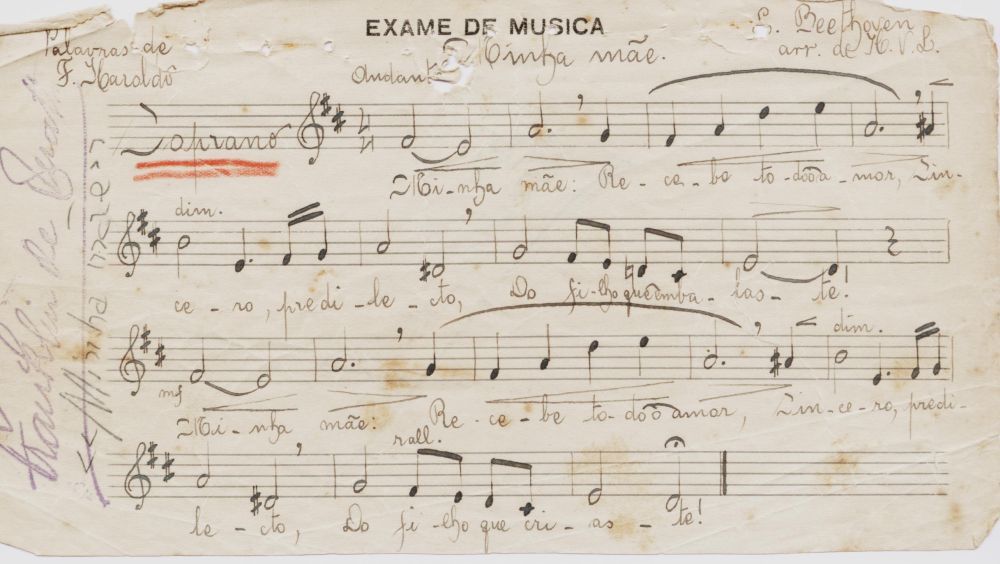 EXAME DE MUSICA
Palavras de
F. Haroldo
Andante
Minha mãe.
L. Beethoven
arr. de H. V. L.
Soprano
Mi-nha mãe: Re-ce-be to-doô a-mor, Sin-
dim.
ce-ro, predi-le-cto, Do fi-lho que emba-las-te!
dim.
mf
Mi-nha mãe: Re-ce-be to-doô amor, Sin-ce-ro, predi-
rall.
le-cto, Do fi-lho que cri-as-te!
Minha